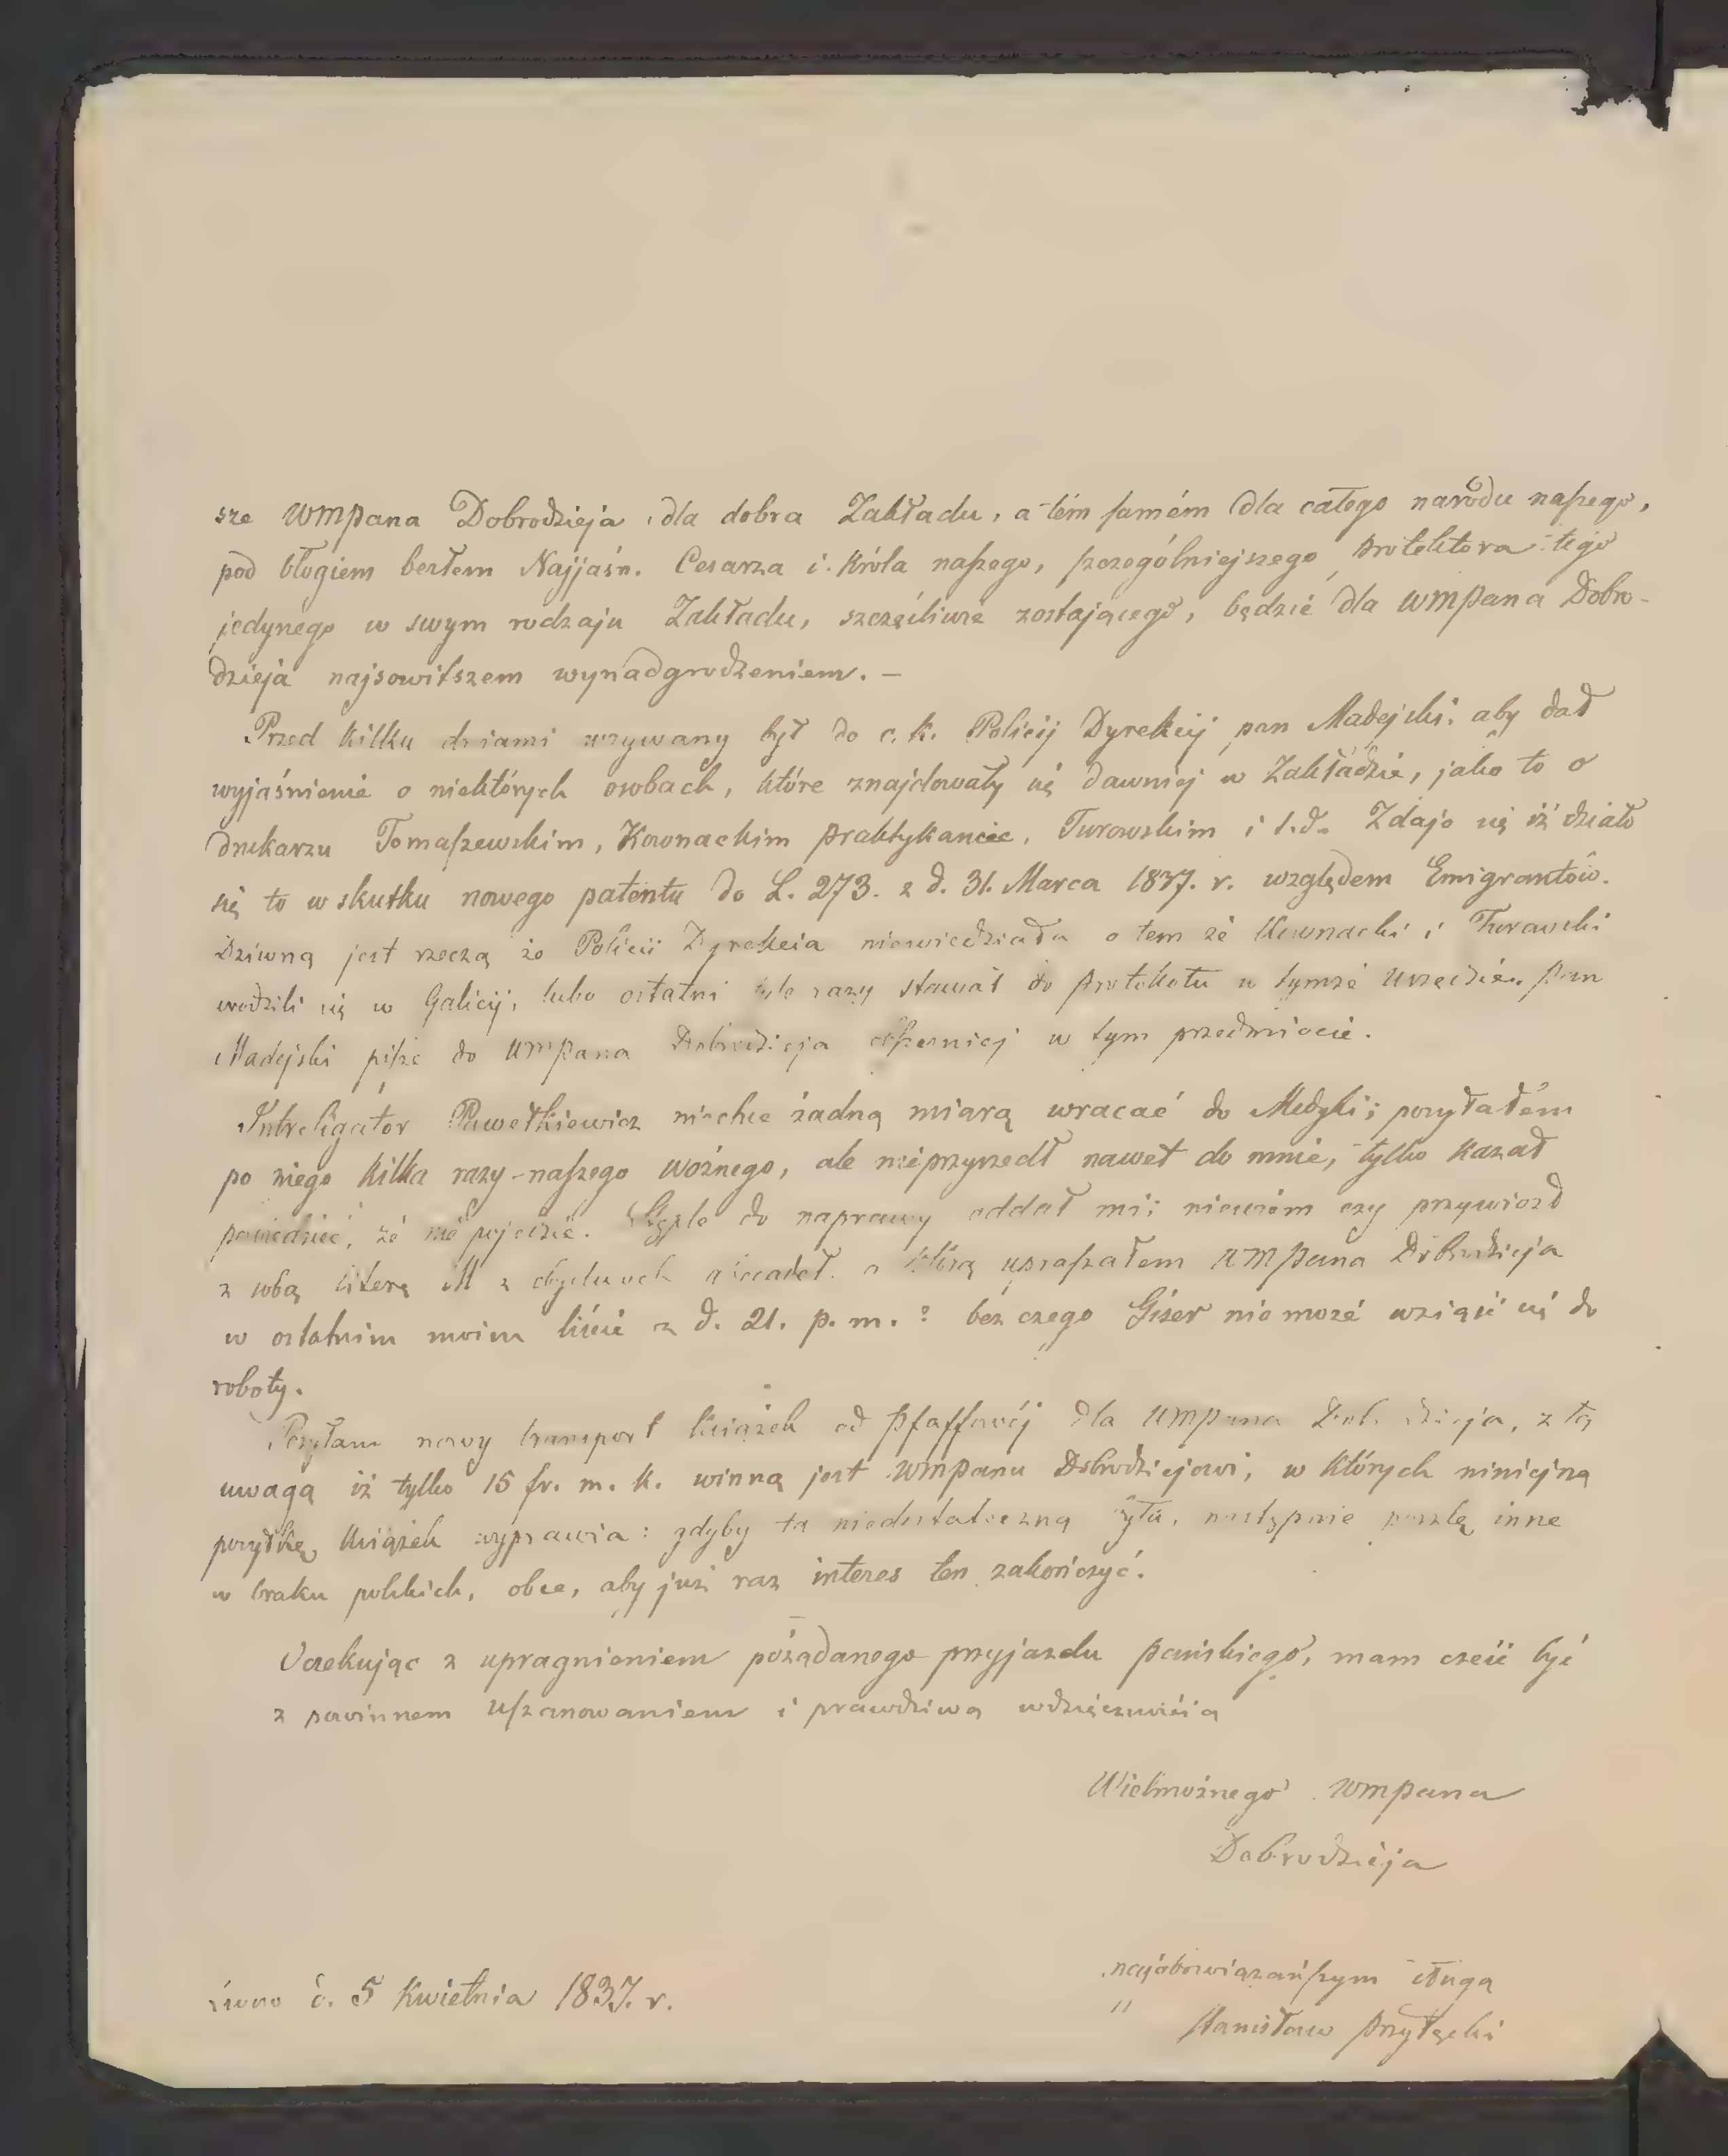 sze WMPana Dobrodzieja, dla dobra Zakładu, a tém samém dla całego narodu naszego,
pod błogiem berłem Najjaśn. Cesarza i Króla naszego, szczególniejszego Protektora tego
jedynego w swym rodzaju Zakładu, szczęśliwie zostającego, będzie dla WMPana Dobro-
dzieja najsowitszem wynadgrodzeniem. –
Przed kilku dniami wzywany był do c. k. Policij Dyrekcij pan Madejski, aby dał
wyjaśnienie o niektórych osobach, które znajdowały się dawniej w Zakładzie, jako to o
drukarzu Tomaszewskim, Kownackim praktykancie, Turowskim i t. d. Zdaje się iż działo
się to w skutku nowego patentu do L. 273. z d. 31. Marca 1837. r. względem Emigrantów.
Dziwną jest rzeczą że Policii Dyrekcia niewiedziała o tem że Kownacki i Turowski
urodzili się w Galicij, lubo ostatni tyle razy stawał do protokołu w tymże Urzędzie. Pan
Madejski pisze do WMPana Dobrodzieja obszerniej w tym przedmiocie.
Introligator Pawełkiewicz niechce żadną miarą wracać do Medyki; posyłałém
po niego kilka razy naszego woźnego, ale nieprzyszedł nawet do mnie, tylko kazał
powiedzieć, że nie pojedzie. do naprawy oddał mi; niewiém czy przywiozł
z sobą literę M z obydwoch o którą upraszałem WMPana Dobrodzieja
w ostatnim moim liście z d. 21. p. m.? bez czego Giser nie może wziąść się do
roboty.
Posyłam nowy transport książek od Pfaffowéj dla WMPana Dobrodzieja, z tą
uwagą iż tylko 15 fr. m. k. winną jest WMPanu Dobrodziejowi, w których niniejszą
posyłkę książek wyprawia: gdyby ta niedostateczną była, następnie poszlę inne
w braku polskich, obce, aby już raz interes ten zakończyć.
Oczekując z upragnieniem pożądanego przyjazdu pańskiego, mam cześć być
z powinnem uszanowaniem i prawdziwą wdzięcznością
Wielmożnego WMPana
Dobrodzieja
najobowiązańszym sługą
d. 5 Kwietnia 1837. r.
Stanisław Przyłęcki